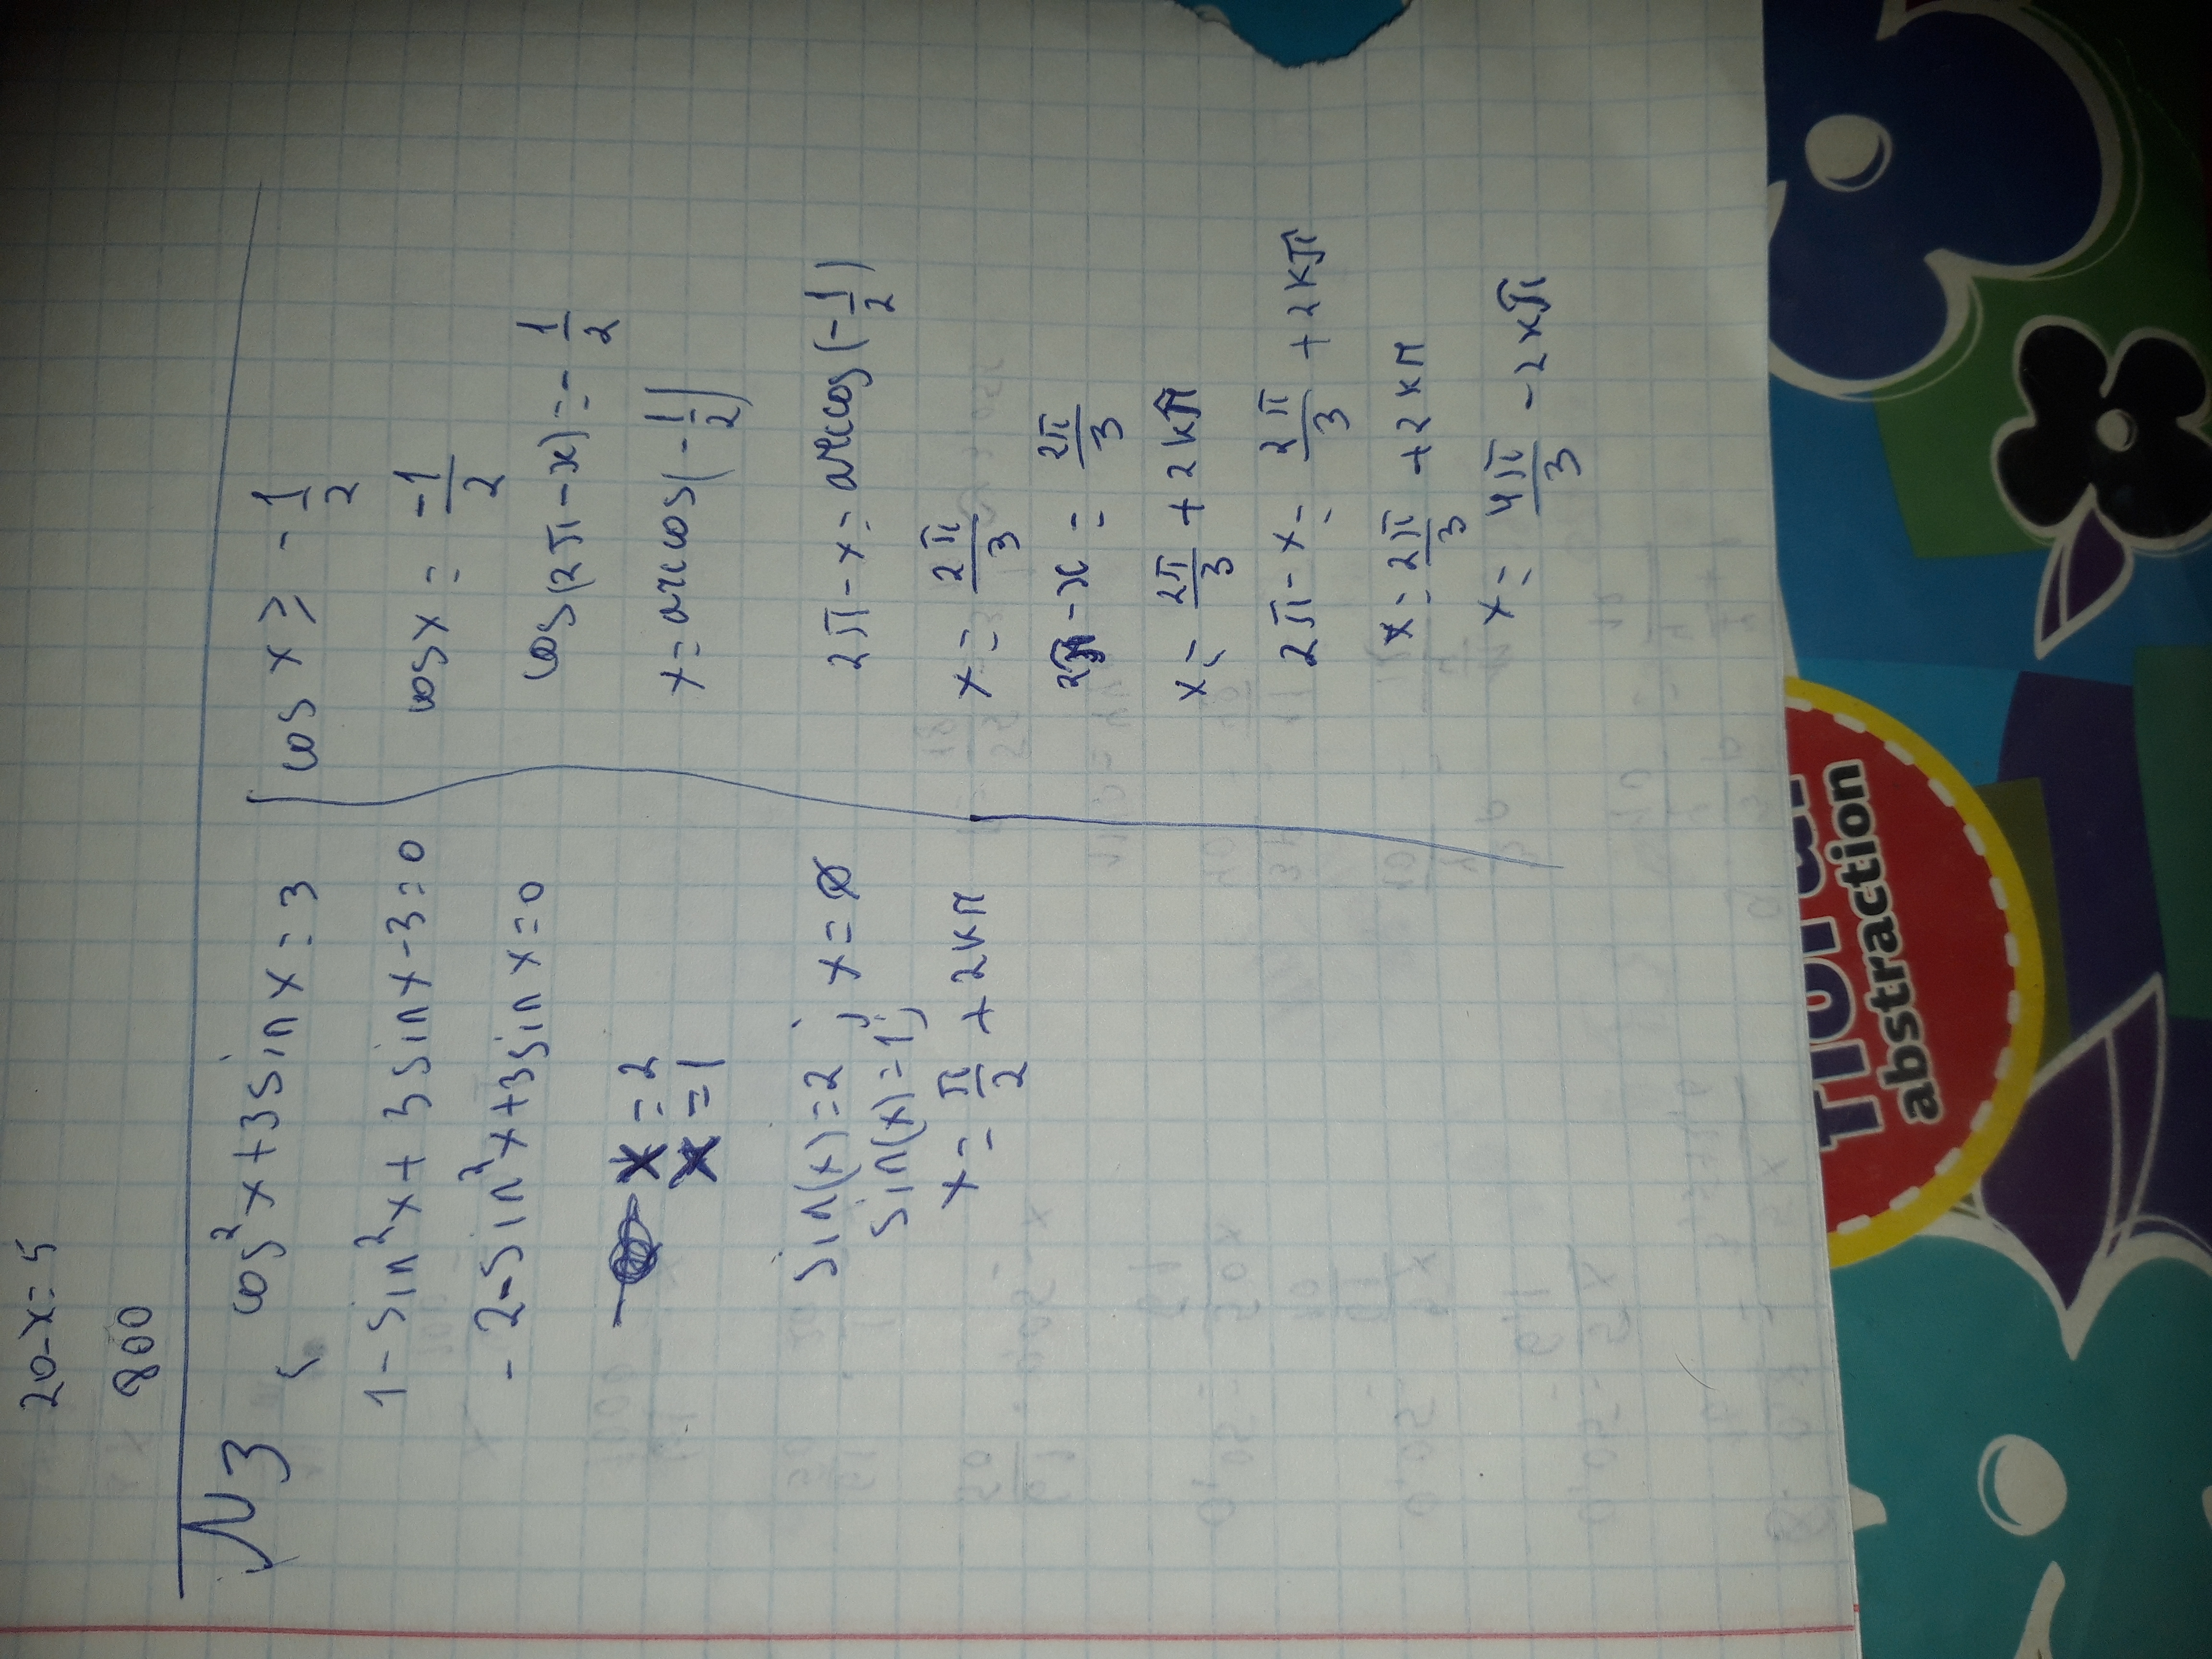 20-x=5
800
№3
cos²x+3sinx=3
1-sin²x+3sinx-3=0
-2-sin²x+3sinx=0
x=2
x=1
sin(x)=2; x=∅
sin(x)=1;
x=π/2+2kπ
cosx≥-1/2
cosx=-1/2
cos(2π-x)=-1/2
x=arccos(-1/2)
2π-x=arccos(-1/2)
x=2π/3
2π-x=2π/3
x=2π/3+2kπ
2π-x=2π/3+2kπ
x=2π/3+2kπ
x=4π/3-2kπ
abstraction